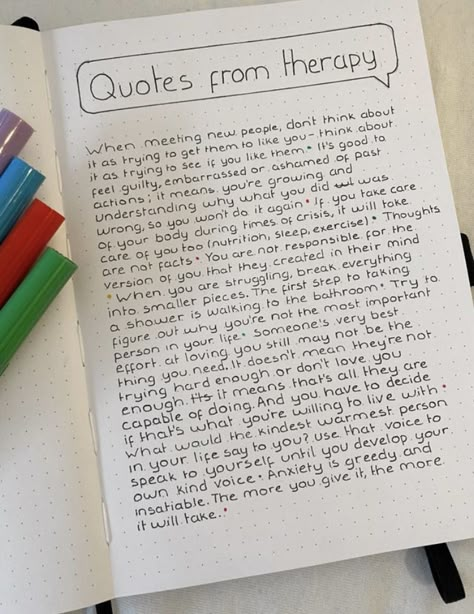 Quotes from therapy
When meeting new people, don't think about
it as trying to get them to like you - think about
it as trying to see if you like them • It's good to
feel guilty, embarrassed or ashamed of past
actions; it means you're growing and
understanding why what you did was
wrong, so you won't do it again • If you take care
of your body during times of crisis, it will take
care of you too (nutrition, sleep, exercise) • Thoughts
are not facts • You are not responsible for the
version of you that they created in their mind
• When you are struggling, break everything
into smaller pieces. The first step to taking
a shower is walking to the bathroom • Try to
figure out why you're not the most important
person in your life • Someone's very best
effort at loving you still may not be the
thing you need. It doesn't mean they're not
trying hard enough or don't love you
enough. It's it means that's all they are
capable of doing. And you have to decide
if that's what you're willing to live with •
What would the kindest warmest person
in your life say to you? use that voice to
speak to yourself until you develop your
own kind voice • Anxiety is greedy and
insatiable. The more you give it, the more
it will take. •